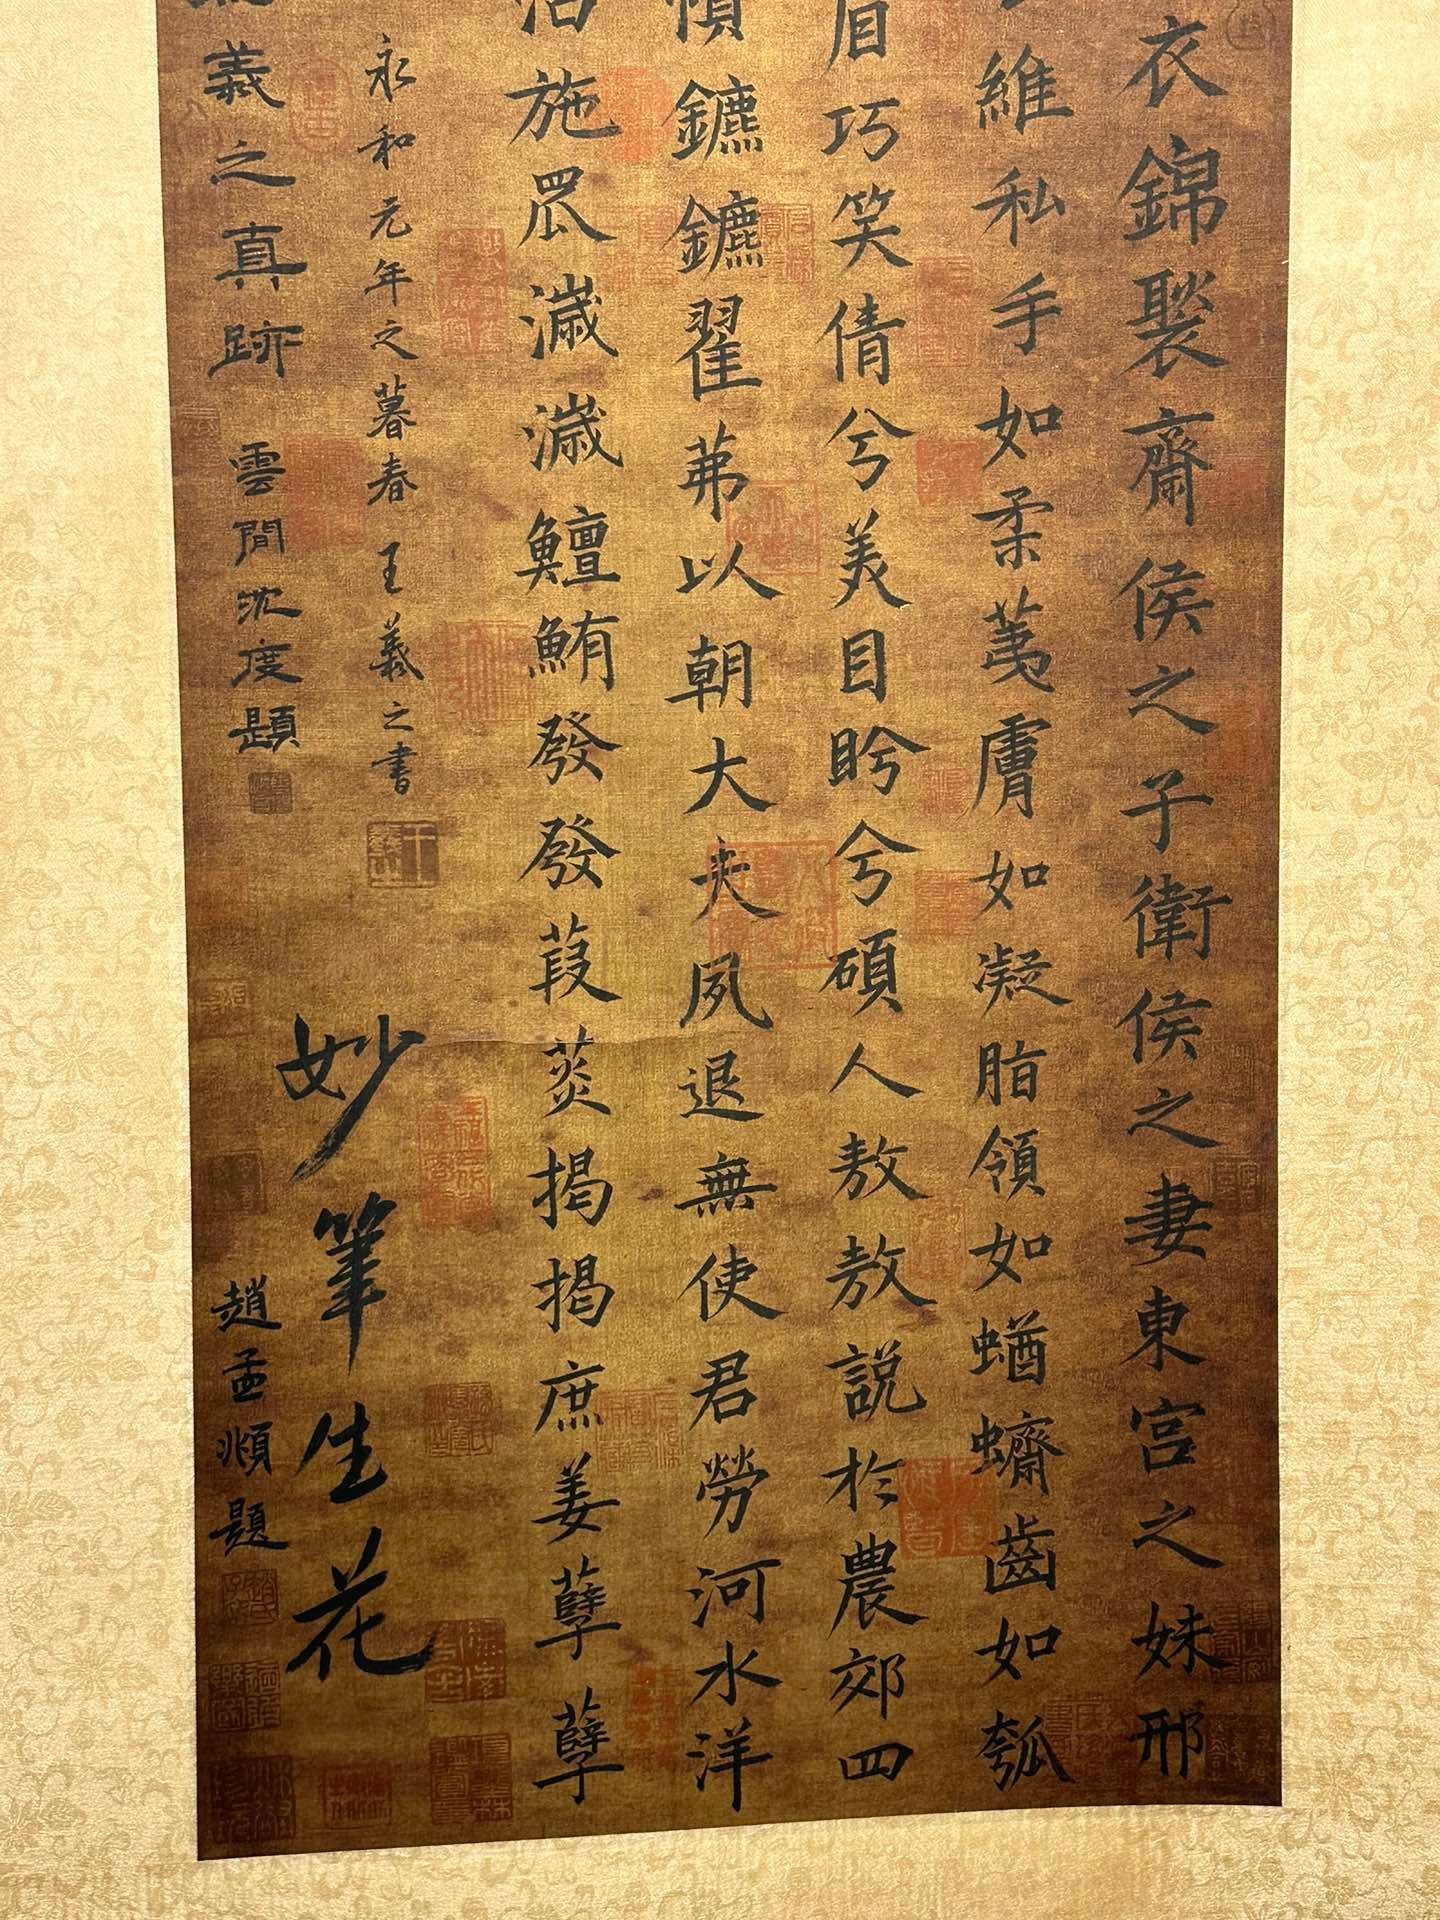 衣錦褧齋侯之子衛侯之妻東宮之妹邢
維私手如柔荑膚如凝脂領如蝤蠐齒如瓠
眉巧笑倩兮美目盼兮碩人敖敖說於農郊四
幩鑣鑣翟茀以朝大夫夙退無使君勞河水洋
活施罛濊濊鱣鮪發發葭菼揭揭庶姜孽孽
永和元年之暮春王羲之書
妙筆生花
羲之真跡雲間沈度題
趙孟頫題